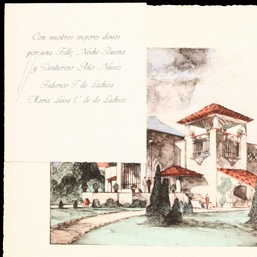 Con nuestros mejores deseos
por una Feliz Noche Buena
y Venturoso Año Nuevo
Federico T. de Lachica
María Luisa C. de de Lachica